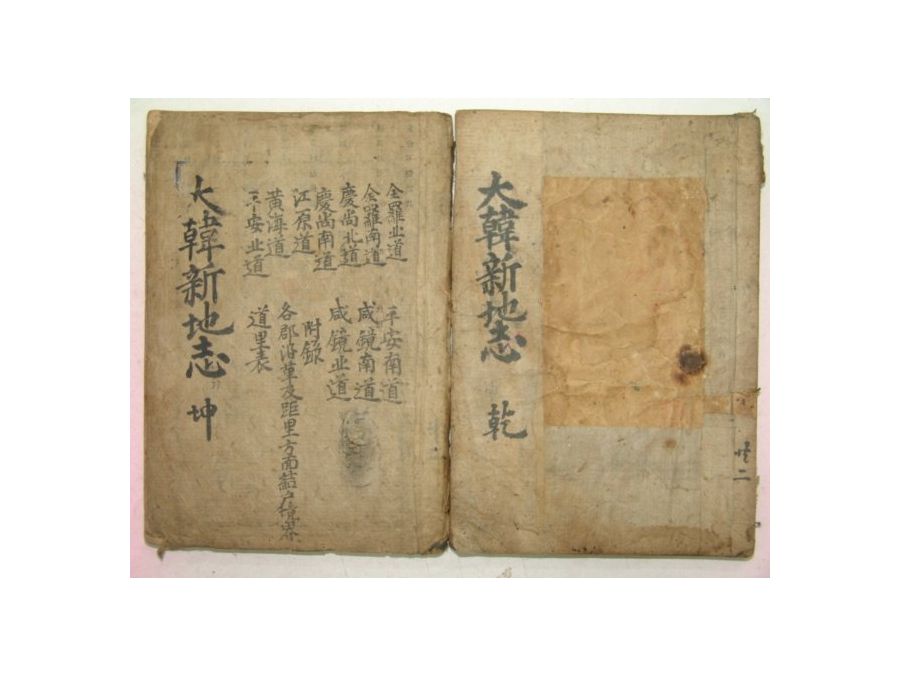 大韓新地志 乾
共二
全羅北道
全羅南道
慶尚北道
慶尚南道
江原道
黃海道
平安北道
平安南道
咸鏡南道
咸鏡北道
附錄
各郡沿革及距里方面結戶境界
道里表
大韓新地志 坤